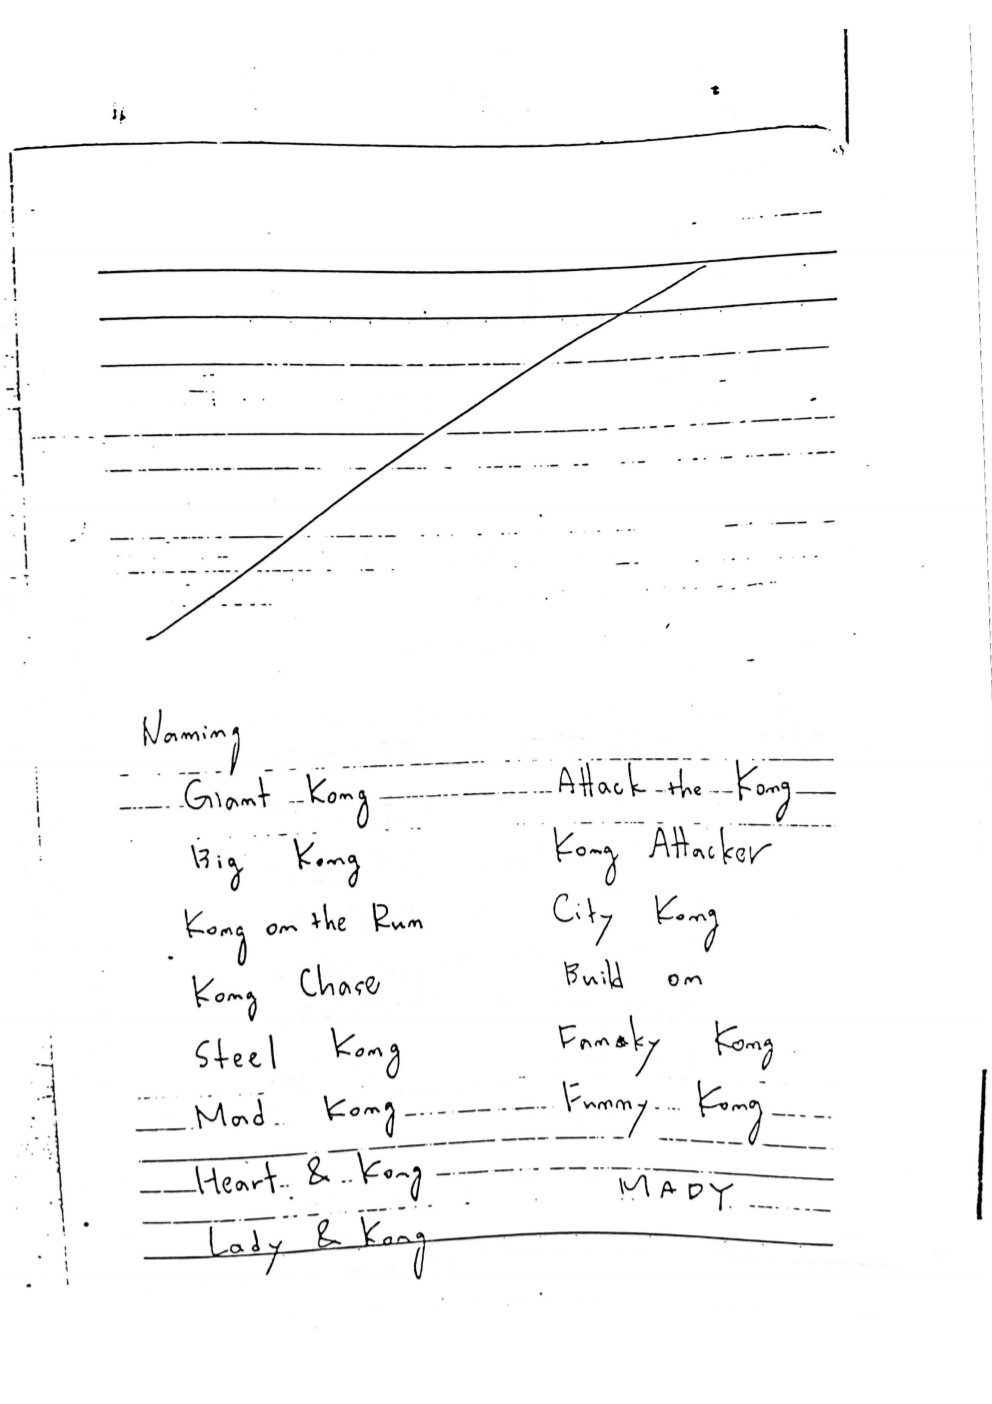 Naming
Giant Kong
Big Kong
Kong on the Run
Kong Chase
Steel Kong
Mad Kong
Heart & Kong
Lady & Kong
Attack the Kong
Kong Attacker
City Kong
Build on
Kong
Funny Kong
MADY